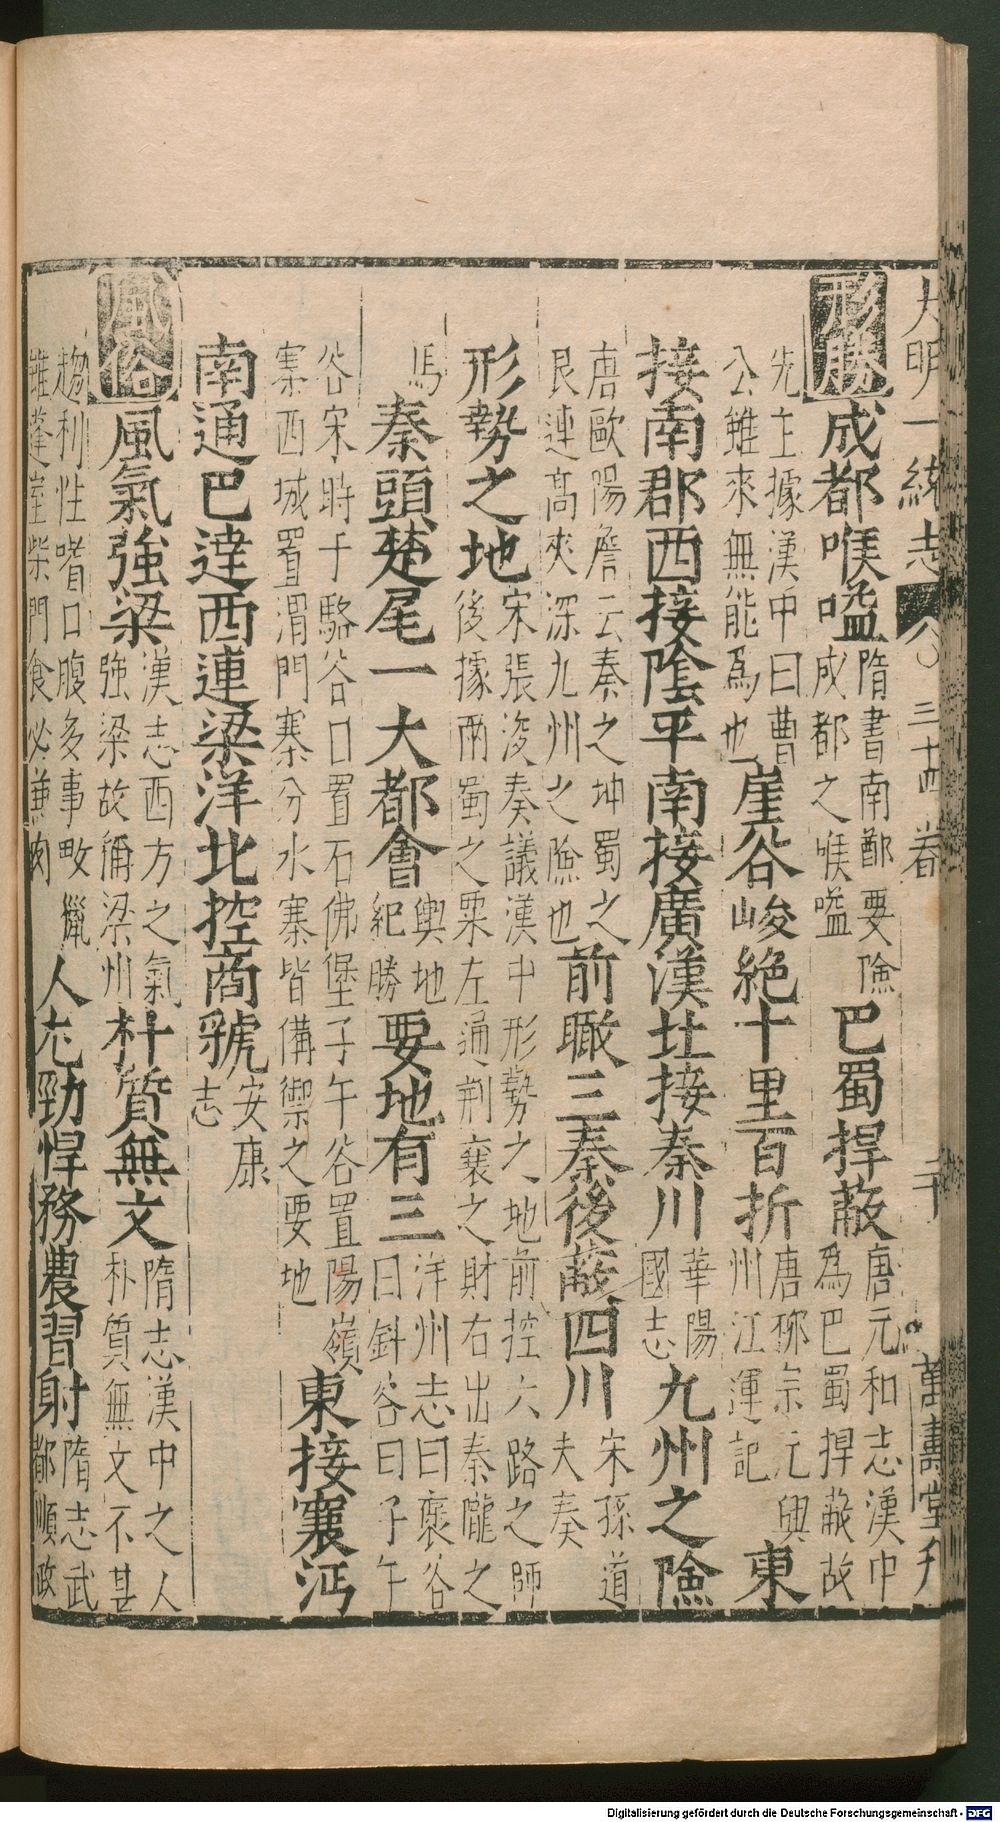 大明一統志 三十四卷 二十 萬壽堂刊
形勝 成都喉嗌 隋書南鄭要險成都之喉嗌 巴蜀捍蔽 唐元和志漢中為巴蜀捍蔽故
先主據漢中曰曹公雖來無能為也 崖谷峻絕十里百折 唐柳宗元興州江運記 東
接南郡西接陰平南接廣漢北接秦川 華陽國志 九州之險
唐歐陽詹云秦之坤蜀之艮連高夾深九州之險也 前瞰三秦後蔽四川 宋孫道夫奏
形勢之地 宋張浚奏議漢中形勢之地前控六路之師後據兩蜀之粟左通荆襄之財右出秦隴之
馬 秦頭楚尾一大都會 輿地紀勝 要地有三 洋州志曰褒谷曰斜谷曰子午
谷宋時于駱谷口置石佛堡子午谷置陽嶺寨西城置渭門寨分水寨皆備禦之要地 東接襄沔
南通巴達西連梁洋北控商虢 安康志
風俗 風氣強梁 漢志西方之氣強梁故稱梁州 朴質無文 隋志漢中之人朴質無文不甚
趨利性嗜口腹多事畋獵雖蓬室柴門食必兼肉 人尤勁悍務農習射 隋志武都順政
Digitalisierung gefördert durch die Deutsche Forschungsgemeinschaft - DFG